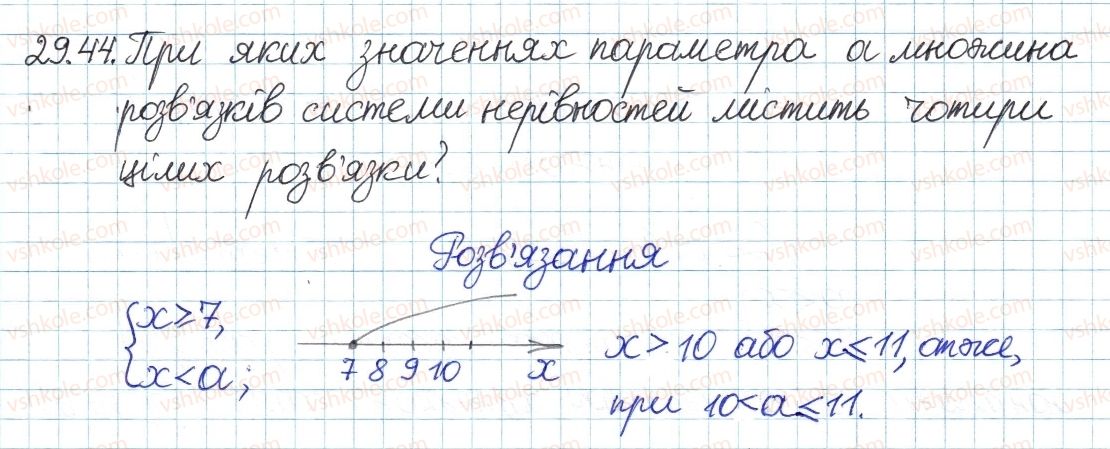 29.44. При яких значеннях параметра a множина
розв'язків системи нерівностей містить чотири
цілих розв'язки?
Розв'язання
{x ≥ 7,
x < a;
7 8 9 10 x
x > 10 або x ≤ 11, отже,
при 10 < a ≤ 11.